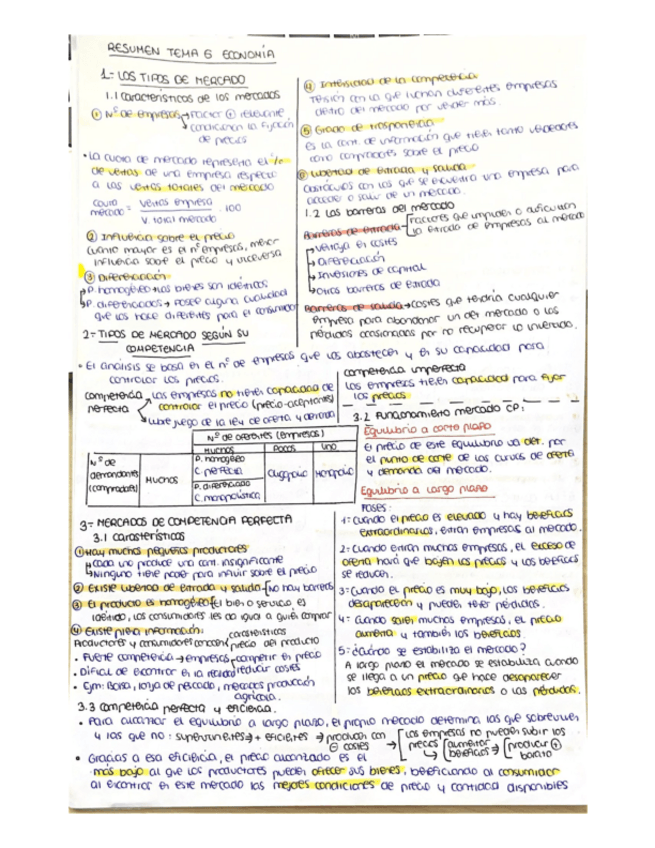 RESUMEN TEMA 6 ECONOMÍA
1- LOS TIPOS DE MERCADO
1.1 Características de los mercados
① Nº de empresas → Factor ⊕ relevante
condicionan la fijación
de precios
• La cuota de mercado representa el %
de ventas de una empresa respecto
a las ventas totales del mercado
cuota mercado = ventas empresa / v. total mercado · 100
② Influencia sobre el precio
cuanto mayor es el nº empresas, menor
influencia sobre el precio y viceversa
③ Diferenciación
P. homogéneo → los bienes son idénticos
P. diferenciados → posee alguna cualidad
que los hace diferentes para el consumidor
④ Intensidad de la competencia
Tensión con la que luchan diferentes empresas
dentro del mercado por vender más.
⑤ Grado de trasparencia
es la cant. de información que tienen tanto vendedores
como compradores sobre el precio
⑥ Libertad de entrada y salida
obstáculos con los que se encuentra una empresa para
acceder o salir de un mercado.
1.2 Las barreras del mercado
Barreras de entrada - Factores que impiden o dificultan
la entrada de empresas al mercado
→ Ventaja en costes
→ Diferenciación
→ Inversiones de capital
→ Otros barreras de entrada
Barreras de salida → costes que tendría cualquier
empresa para abandonar un del mercado o las
pérdidas ocasionadas por no recuperar lo invertido.
2- TIPOS DE MERCADO SEGÚN SU
COMPETENCIA
• El análisis se basa en el nº de empresas que las abastecen y en su capacidad para
controlar los precios.
competencia perfecta
Las empresas no tienen capacidad de
controlar el precio (precio-aceptantes)
Libre juego de la ley de oferta y demanda
competencia imperfecta
Las empresas tienen capacidad para fijar
los precios
Nº de oferentes (empresas)
MUCHOS POCOS UNO
Nº de demandantes (compradores)
MUCHOS
P. homogéneo
C. perfecta
P. diferenciado
C. monopolística
Oligopolio
Monopolio
3- MERCADOS DE COMPETENCIA PERFECTA
3.1 características
① Hay muchos pequeños productores
cada uno produce una cant. insignificante
Ninguno tiene poder para influir sobre el precio
② Existe libertad de entrada y salida - [No hay barreras
③ El producto es homogéneo [El bien o servicio es
idéntico, los consumidores les da igual a quien comprar
④ Existe plena información:
Productores y consumidores conocen características
precio del producto
• Fuerte competencia → empresas competir en precio
reducir costes
• Difícil de encontrar en la realidad
• Ejm: Bolsa, lonja de pescado, mercados producción
agrícola.
3.2 Funcionamiento mercado CP:
Equilibrio a corto plazo
El precio de este equilibrio va det. por
el punto de corte de las curvas de oferta
y demanda del mercado.
Equilibrio a largo plazo
FASES:
1= cuando el precio es elevado y hay beneficios
extraordinarios, entran empresas al mercado.
2= cuando entran muchas empresas, el exceso de
oferta hará que bajen los precios y los beneficios
se reducen.
3= cuando el precio es muy bajo, los beneficios
desaparecen y pueden tener pérdidas.
4= cuando salen muchas empresas, el precio
aumenta y también los beneficios.
5= ¿cuándo se estabiliza el mercado?
A largo plazo el mercado se estabiliza cuando
se llega a un precio que hace desaparecer
los beneficios extraordinarios o las pérdidas.
3.3 competencia perfecta y eficiencia.
• Para alcanzar el equilibrio a largo plazo, el propio mercado determina las que sobreviven
y las que no: supervivientes → + eficientes → producen con
⊖ costes → [Las empresas no pueden subir los
precios [aumentar beneficios → [producir ⊕
barato
• Gracias a esa eficiencia, el precio alcanzado es el
más bajo al que los productores pueden ofrecer sus bienes, beneficiando al consumidor
al encontrar en este mercado las mejores condiciones de precio y cantidad disponibles